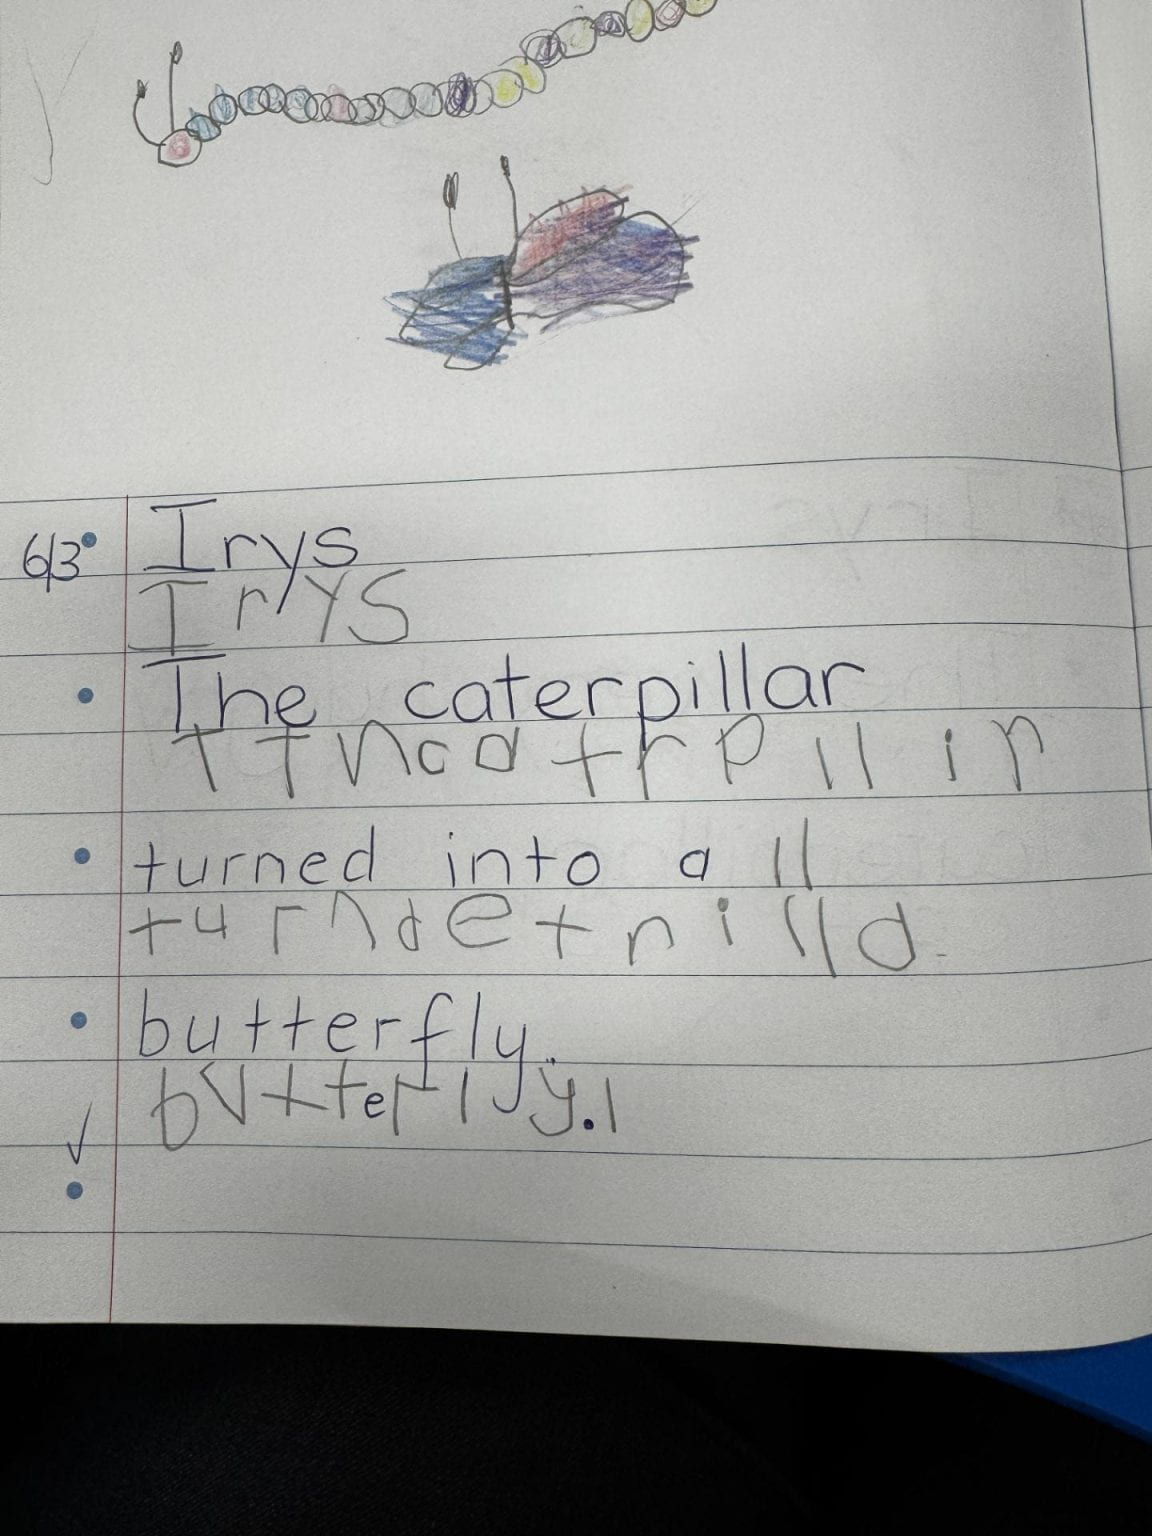 6/3 Irys
IrYS
The caterpillar
TTNcatrpllir
turned into a ll
turndetnilld
butterfly.
bVtterlJy.l